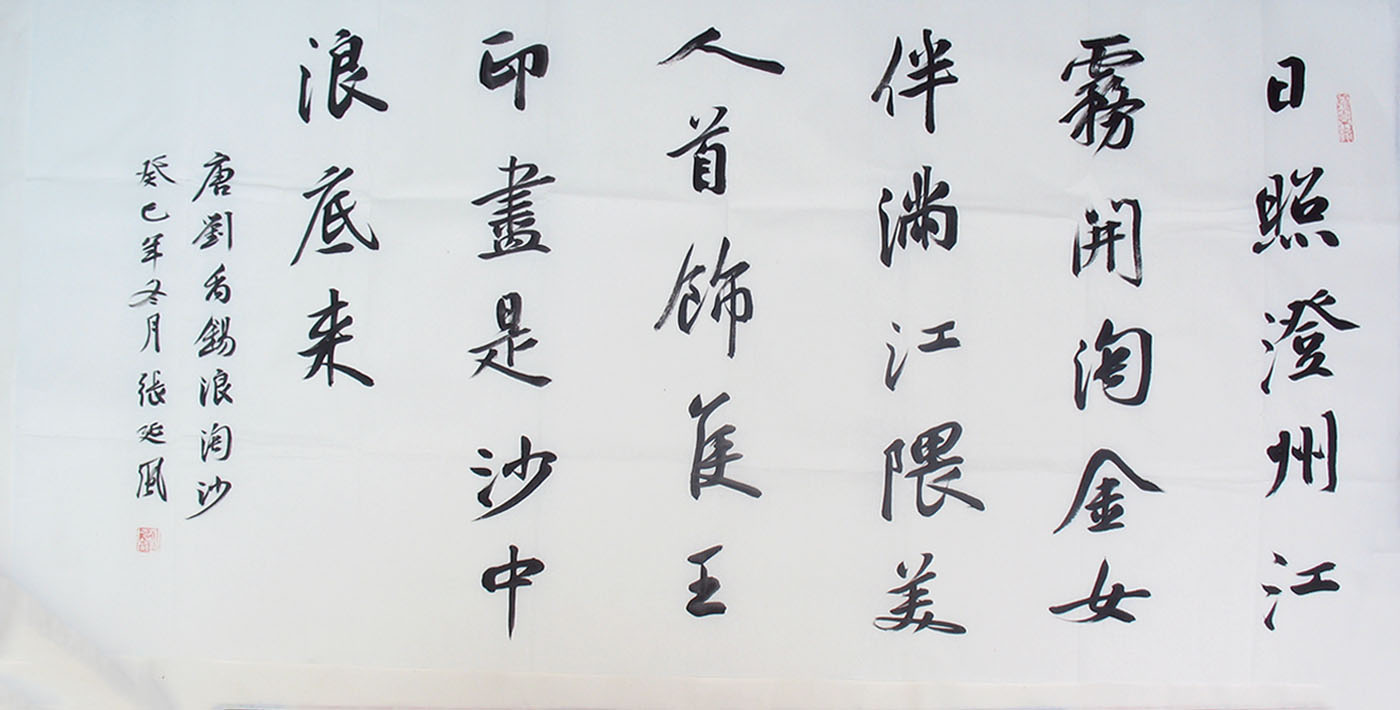 日照澄州江
霧開淘金女
伴滿江隈美
人首飾侯王
印盡是沙中
浪底来
唐劉禹錫浪淘沙
癸巳年冬月張延風